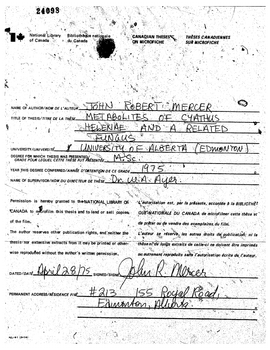 24098
National Library of Canada
Bibliothèque nationale du Canada
CANADIAN THESES ON MICROFICHE
THÈSES CANADIENNES SUR MICROFICHE
NAME OF AUTHOR/NOM DE L'AUTEUR JOHN ROBERT MERCER
TITLE OF THESIS/TITRE DE LA THÈSE METABOLITES OF CYATHUS
HELENAE AND A RELATED
FUNGUS
UNIVERSITY/UNIVERSITÉ UNIVERSITY OF ALBERTA (EDMONTON)
DEGREE FOR WHICH THESIS WAS PRESENTED/
GRADE POUR LEQUEL CETTE THÈSE FUT PRÉSENTÉE M.Sc.
YEAR THIS DEGREE CONFERRED/ANNÉE D'OBTENTION DE CE GRADE 1975
NAME OF SUPERVISOR/NOM DU DIRECTEUR DE THÈSE Dr. W.A. Ayer
Permission is hereby granted to the NATIONAL LIBRARY OF
CANADA to microfilm this thesis and to lend or sell copies
of the film.
The author reserves other publication rights, and neither the
thesis nor extensive extracts from it may be printed or other-
wise reproduced without the author's written permission.
L'autorisation est, par la présente, accordée à la BIBLIOTHÈ-
QUE NATIONALE DU CANADA de microfilmer cette thèse et
de prêter ou de vendre des exemplaires du film.
L'auteur se réserve les autres droits de publication; ni la
thèse ni de longs extraits de celle-ci ne doivent être imprimés
ou autrement reproduits sans l'autorisation écrite de l'auteur.
DATED/DATÉ April 28/75 SIGNED/SIGNÉ John R. Mercer
PERMANENT ADDRESS/RÉSIDENCE FIXE #213 155 Royal Road,
Edmonton, Alberta